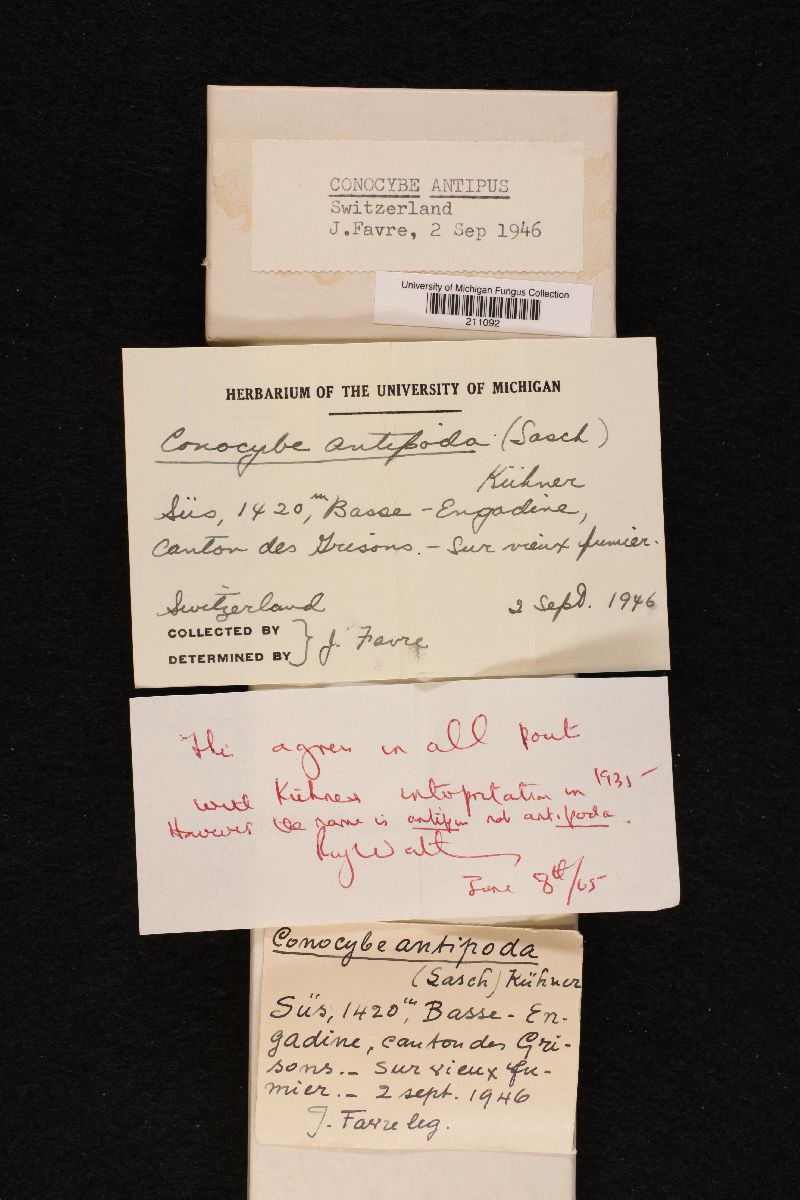 CONOCYBE ANTIPUS
Switzerland
J.Favre, 2 Sep 1946
University of Michigan Fungus Collection
211092
HERBARIUM OF THE UNIVERSITY OF MICHIGAN
Conocybe antipoda (Sasch)
Kühner
Süs, 1420m, Basse-Engadine,
Canton des Grisons. - Sur vieux fumier.
Switzerland 2 Sept. 1946
COLLECTED BY
DETERMINED BY } J. Favre
This agrees in all point
with Kühner's interpretation in 1935
However the name is antipus not antipoda.
Roy Watl
June 8th/65
Conocybe antipoda
(Lasch) Kühner
Süs, 1420m, Basse-En-
gadine, canton des Gri-
sons. - Sur vieux fu-
mier. - 2 sept. 1946
J. Favre leg.